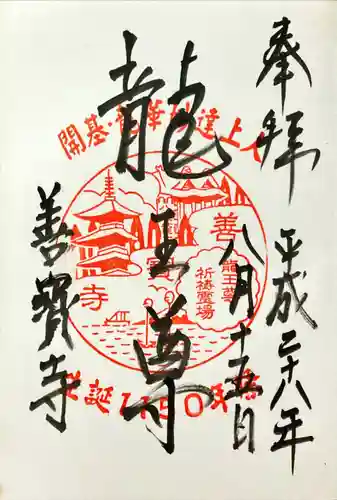 奉拝
平成二十八年
八月十五日
龍王尊
善寳寺
開基・龍華妙達上人
善寳寺
龍王尊
祈祷霊場
生誕1150年